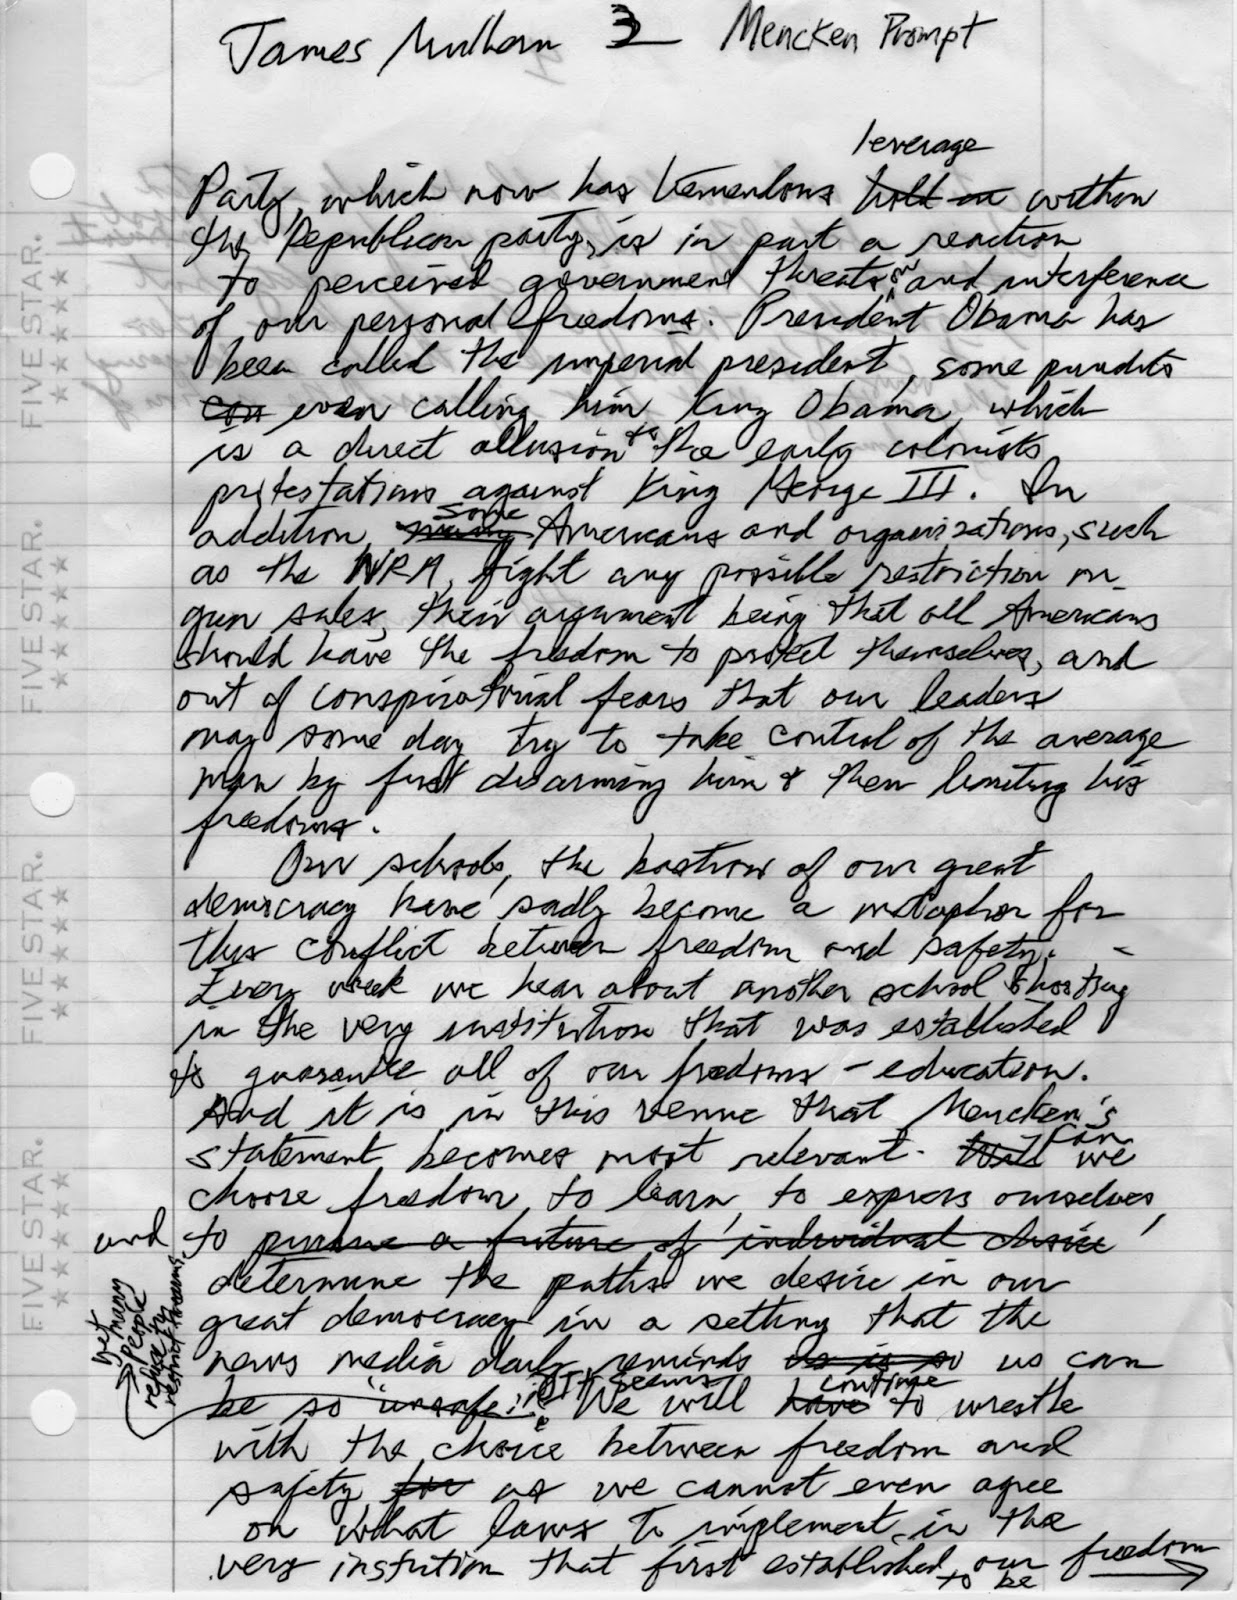 James Mulhern 3 Mencken Prompt
leverage
Party, which now has tremendous hold on within
the Republican party, is in part a reaction
to perceived government threats on and interference
of our personal freedoms. President Obama has
been called the imperial president, some pundits
con even calling him King Obama, which
is a direct allusion to the early colonists
protestations against King George III. In
some
addition, many Americans and organizations, such
as the NRA, fight any possible restriction on
gun sales, their argument being that all Americans
should have the freedom to protect themselves, and
out of conspiratorial fears that our leaders
may some day try to take control of the average
man by first disarming him & then limiting his
freedoms.
Our schools, the bastion of our great
democracy have sadly become a metaphor for
this conflict between freedom and safety.
Every week we hear about another school shooting
in the very institution that was established
to guarantee all of our freedoms - education.
And it is in this venue that Mencken's
can
statement becomes most relevant. Will we
choose freedom to learn, to express ourselves,
and to pursue a future of individual choice
determine the paths we desire in our
great democracy in a setting that the
news media daily reminds us is so us can
be so "unsafe." It seems
yet many people refuse to restrict firearms.
continue
We will have to wrestle
with the choice between freedom and
safety for as we cannot even agree
on what laws to implement in the
very instition that first established our freedom
to be
FIVE STAR.
FIVE STAR.
FIVE STAR.
FIVE STAR.